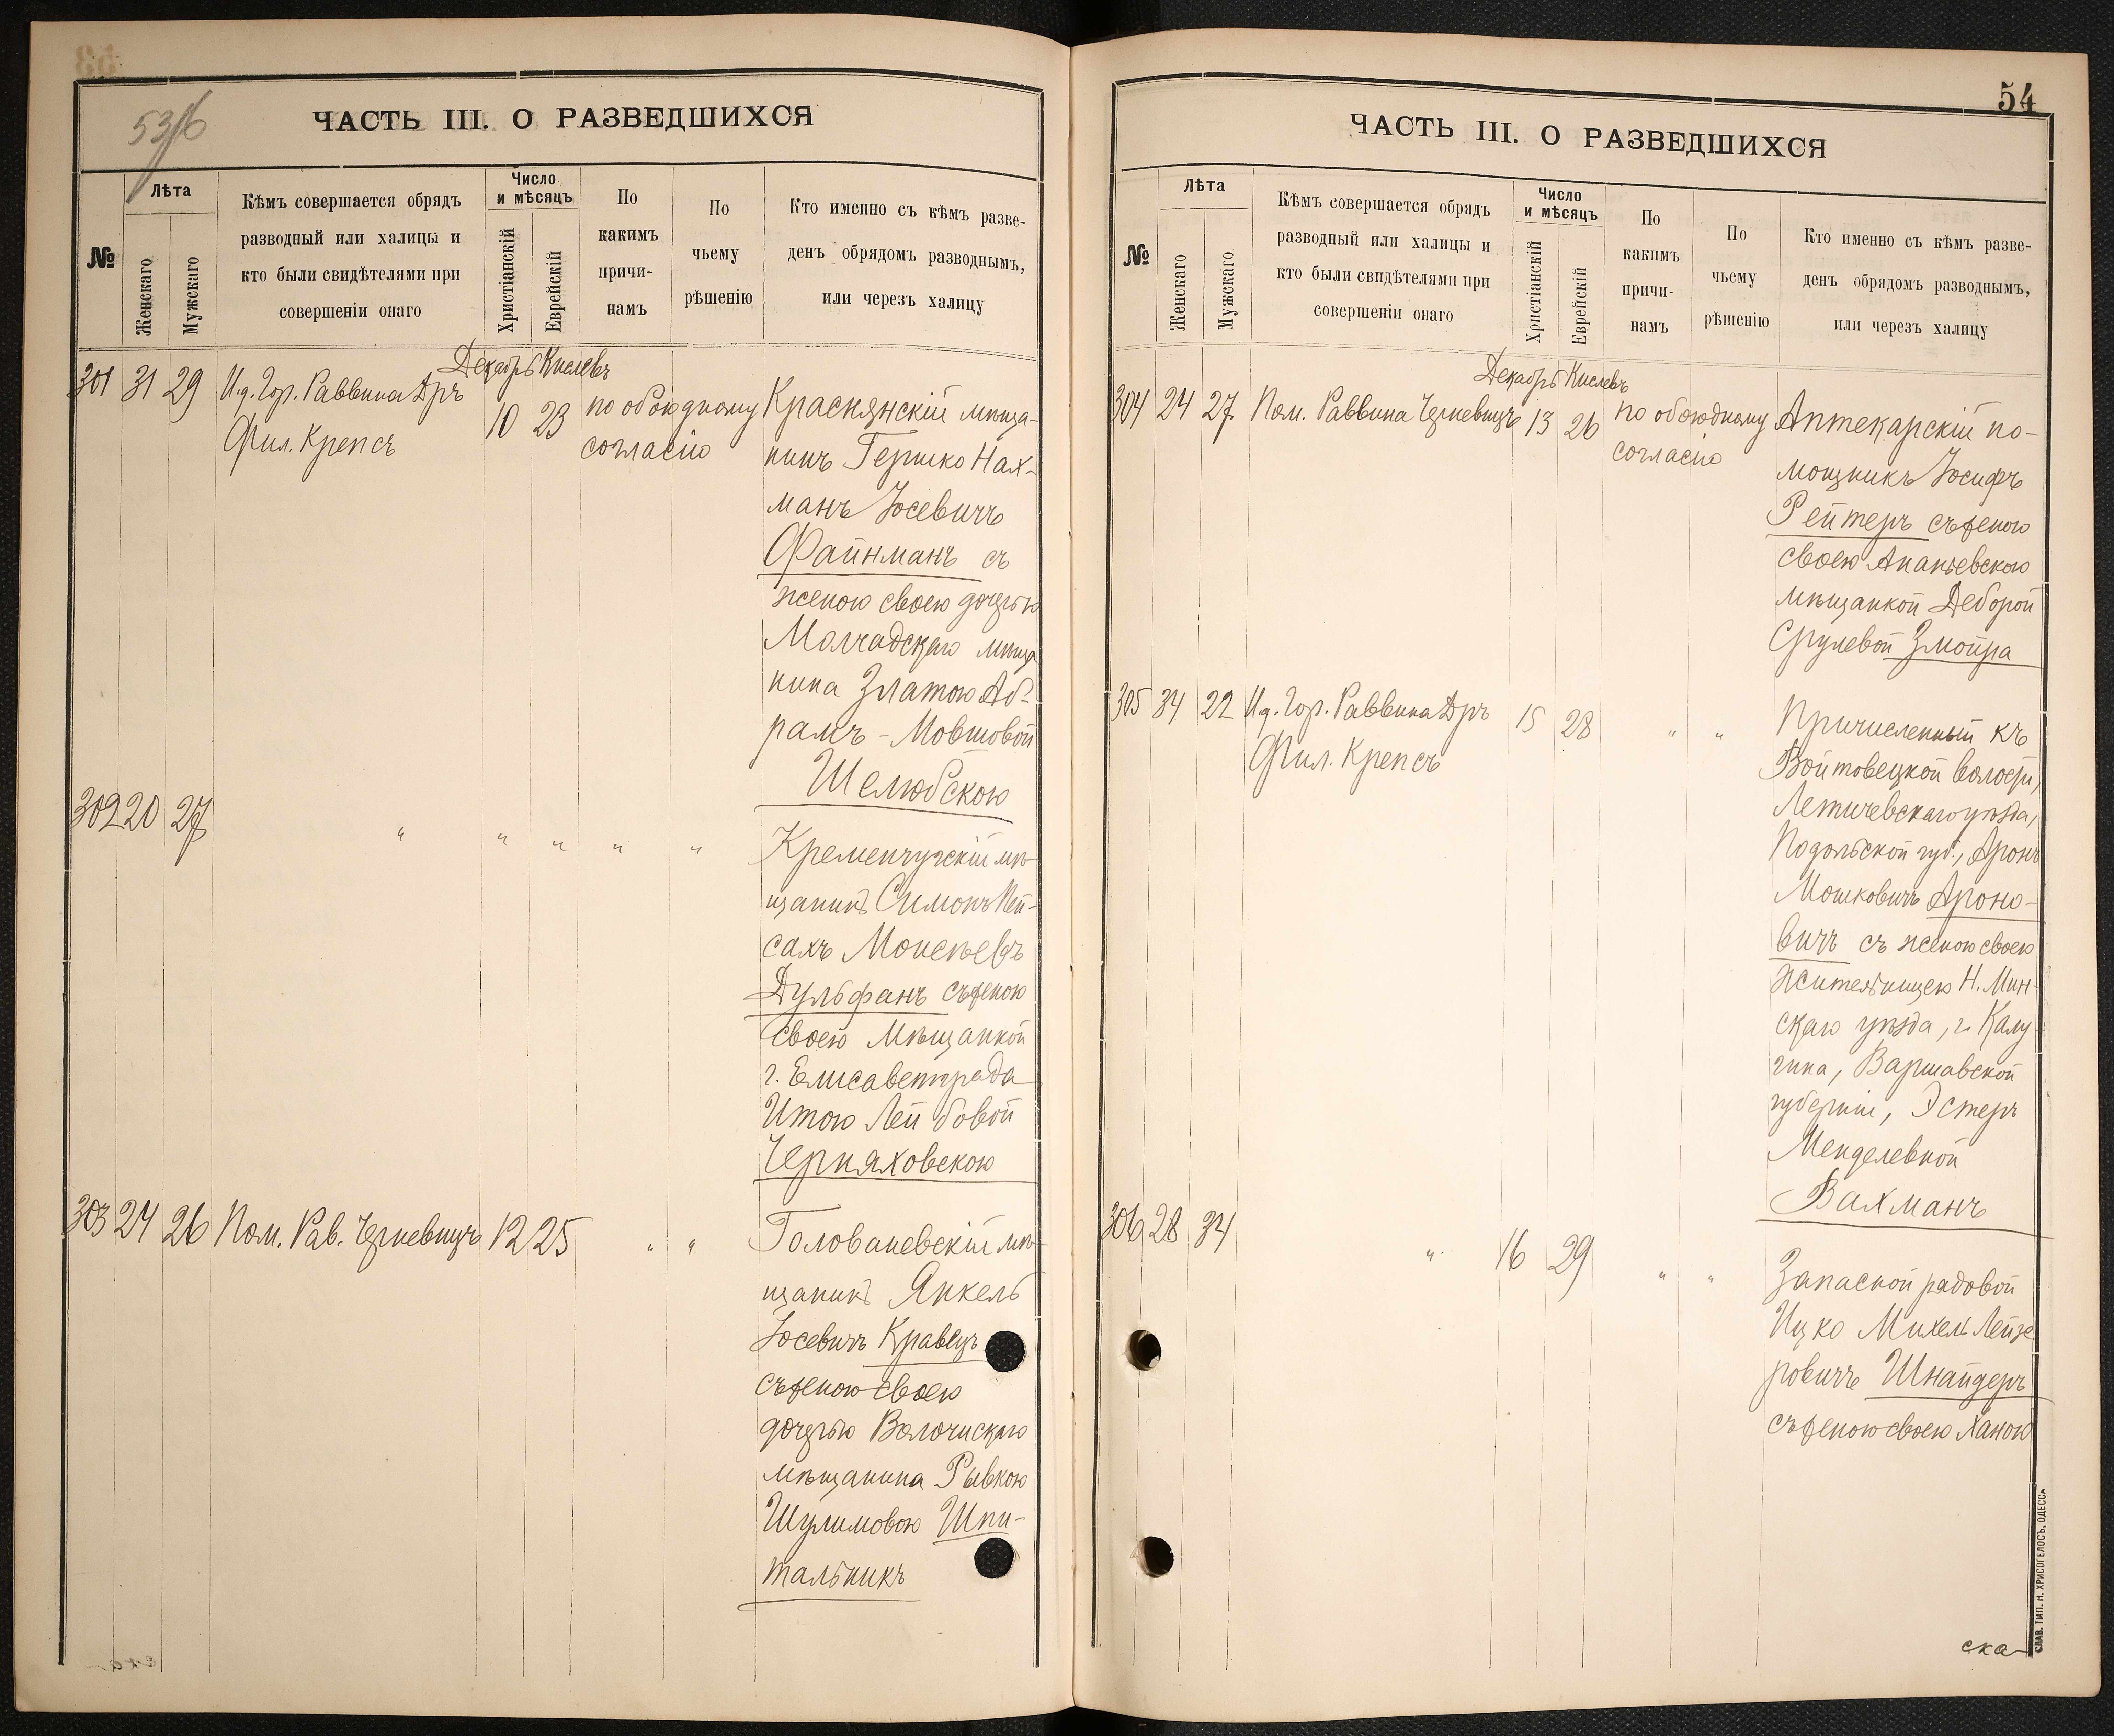 53/б
ЧАСТЬ III. О РАЗВЕДШИХСЯ
№
Лѣта
Женскаго
Мужскаго
Кѣмъ совершается обрядъ
разводный или халицы и
кто были свидѣтелями при
совершеніи онаго
Число
и мѣсяцъ
Христіанскій
Еврейскій
По
какимъ
причи-
намъ
По
чьему
рѣшенію
Кто именно съ кѣмъ разве-
денъ обрядомъ разводнымъ,
или черезъ халицу
Декабрь Кислевъ
301 31 29 И.д. Гор. Раввина Дръ 10 23 по обоюдному Краснянскій мѣща-
Фил. Крепсъ согласію нинъ Гершко Нах-
манъ Іосевичъ
Файнманъ съ
женою своею дочерью
Молчадскаго мѣща
нина Златою Аб-
рамъ-Мовшовой
Шелюбскою
302 20 27 " " " " " Кременчугскій мѣ-
щанинъ Симонъ Пей-
сахъ Моисѣевъ
Дульфанъ съ женою
своею мѣщанкой
г. Елисаветграда
Итою Лейбовой
Черняховскою
303 24 26 Пом. Рав. Черневичъ 12 25 " " Голованевскій мѣ-
щанинъ Янкель
Іосевичъ Кравецъ
съ женою своею
дочерью Волочискаго
мѣщанина Рывкою
Шулимовою Шпи-
тальникъ
54
ЧАСТЬ III. О РАЗВЕДШИХСЯ
№
Лѣта
Женскаго
Мужскаго
Кѣмъ совершается обрядъ
разводный или халицы и
кто были свидѣтелями при
совершеніи онаго
Число
и мѣсяцъ
Христіанскій
Еврейскій
По
какимъ
причи-
намъ
По
чьему
рѣшенію
Кто именно съ кѣмъ разве-
денъ обрядомъ разводнымъ,
или черезъ халицу
Декабрь Кислевъ
304 24 27 Пом. Раввина Черневичъ 13 26 по обоюдному Аптекарскій по-
согласію мощникъ Іосифъ
Рейтеръ съ женою
своею Ананьевскою
мѣщанкой Деборой
Срулевой Змойра
305 34 22 И.д. Гор. Раввина Дръ 15 28 " " Причисленный къ
Фил. Крепсъ Войтовецкой волости,
Летичевскаго уѣзда,
Подольской губ., Аронъ
Мошковичъ Ароно-
вичъ съ женою своею
жительницею Н. Мин-
скаго уѣзда, г. Калу-
шна, Варшавской
губерніи, Эстеръ
Менделевной
Вахманъ
306 28 34 " 16 29 " " Запасной рядовой
Ицко Михель Лейзе
ровичъ Шнайдеръ
съ женою своею Ханою
ска-
СЛАВ. ТИП. Н. ХРИСОГЕЛОСЪ, ОДЕССА